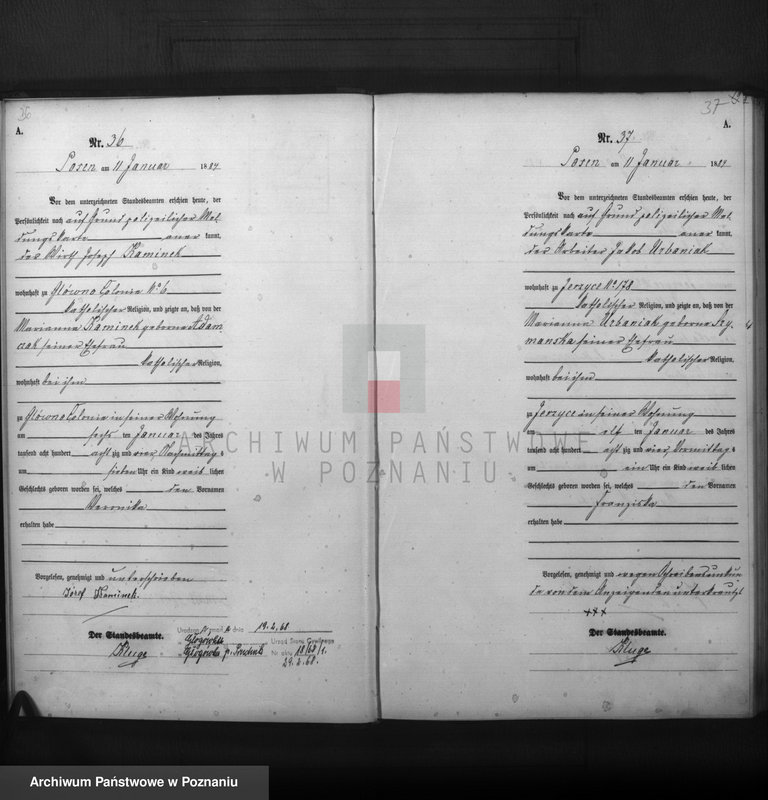 36
A.
Nr. 36
Posen am 11 Januar 1884
Vor dem unterzeichneten Standesbeamten erschien heute, der
Persönlichkeit nach auf Grund polizeilicher Mel
dungskarte aner kannt,
der Wirth Joseph Kaminek
wohnhaft zu Glówno Colonie No. 6
katholischer Religion, und zeigte an, daß von der
Marianna Kaminek geborne Adam
czak seiner Ehefrau
katholischer Religion,
wohnhaft bei ihm
zu Glówno Colonie in seiner Wohnung
am sechs ten Januar des Jahres
tausend acht hundert acht zig und vier Nachmittags
um sieben Uhr ein Kind weib lichen
Geschlechts geboren worden sei, welches den Vornamen
Weronika
erhalten habe
Vorgelesen, genehmigt und unterschrieben
Józef Kaminek.
Der Standesbeamte.
Kluge
19.2.68
Urząd Stanu Cywilnego
Nr aktu 18/68/1.
29.2.68.
37
A.
Nr. 37
Posen am 11 Januar 1884
Vor dem unterzeichneten Standesbeamten erschien heute, der
Persönlichkeit nach auf Grund polizeilicher Mel
dungskarte aner kannt,
der Arbeiter Jakob Urbaniak
wohnhaft zu Jerzyce No 178
katholischer Religion, und zeigte an, daß von der
Marianna Urbaniak geborne Szy
manska seiner Ehefrau
katholischer Religion,
wohnhaft bei ihm
zu Jerzyce in seiner Wohnung
am elf ten Januar des Jahres
tausend acht hundert acht zig und vier Vormittags
um ein Uhr ein Kind weib lichen
Geschlechts geboren worden sei, welches den Vornamen
Franziska
erhalten habe
Vorgelesen, genehmigt und wegen Schreibensunkun
de von dem Anzeigenden unterkreuzt
+++
Der Standesbeamte.
Kluge
ARCHIWUM PAŃSTWOWE
W POZNANIU
Archiwum Państwowe w Poznaniu